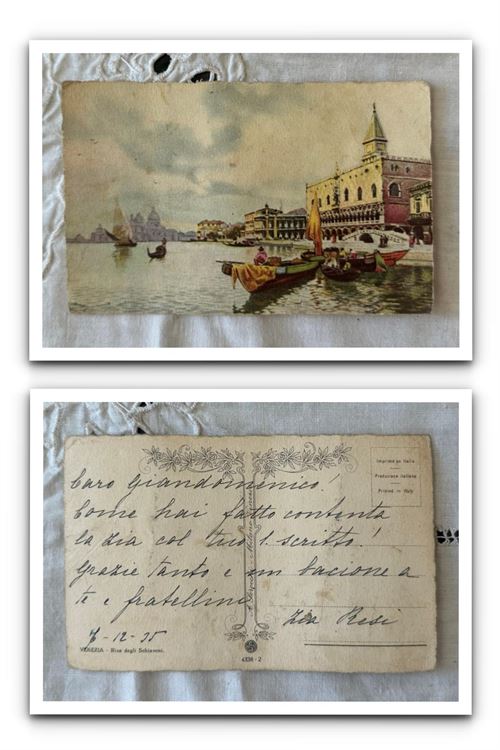 Caro Giandomenico!
Come hai fatto contenta
la zia col tuo 1. scritto!
Grazie tanto e un bacione a
te e fratellini
Zia Resi
7-12-35
VENEZIA - Riva degli Schiavoni.
4338-2
Imprimé en Italie
Produzione italiana
Printed in Italy
Milano